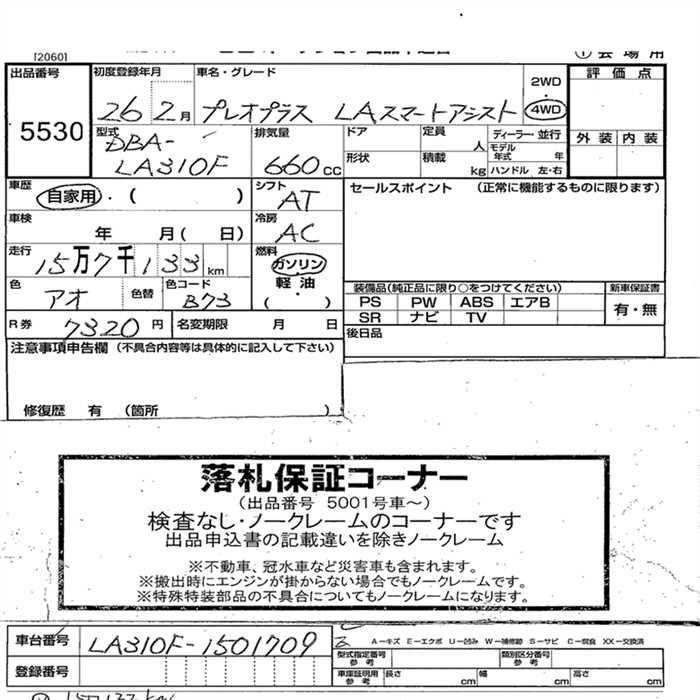 [2060]
① 会場用
出品番号 初度登録年月 車名・グレード 2WD 評価点
5530 26 2月 プレオプラス LAスマートアシスト 4WD
型式 排気量 ドア 定員 人 ディーラー・並行 外装 内装
DBA-LA310F 660cc 形状 積載 kg モデル年式 年 ハンドル 左・右
車歴 自家用・( ) シフト AT セールスポイント (正常に機能するものに限ります)
車検 年 月( 日) 冷房 AC
走行 15万7千133km 燃料 ガソリン 軽油・( )
色 アオ 色替 色コード B73
装備品(純正品に限り○をつけてください) 新車保証書
PS PW ABS エアB 有・無
SR ナビ TV
R券 7320円 名変期限 月 日 後日品
注意事項申告欄 (不具合内容等は具体的に記入して下さい)
修復歴 有 (箇所 )
落札保証コーナー
(出品番号 5001号車~)
検査なし・ノークレームのコーナーです
出品申込書の記載違いを除きノークレーム
※不動車、冠水車など災害車も含まれます。
※搬出時にエンジンが掛からない場合でもノークレームです。
※特殊特装部品の不具合についてもノークレームになります。
車台番号 LA310F-1501709 A－キズ E－エクボ U－凹み W－補修跡 S－サビ C－腐食 XX－交換済
型式指定番号 参考 類別区分番号 参考
登録番号 車庫証明用 参考 長さ cm 幅 cm 高さ cm